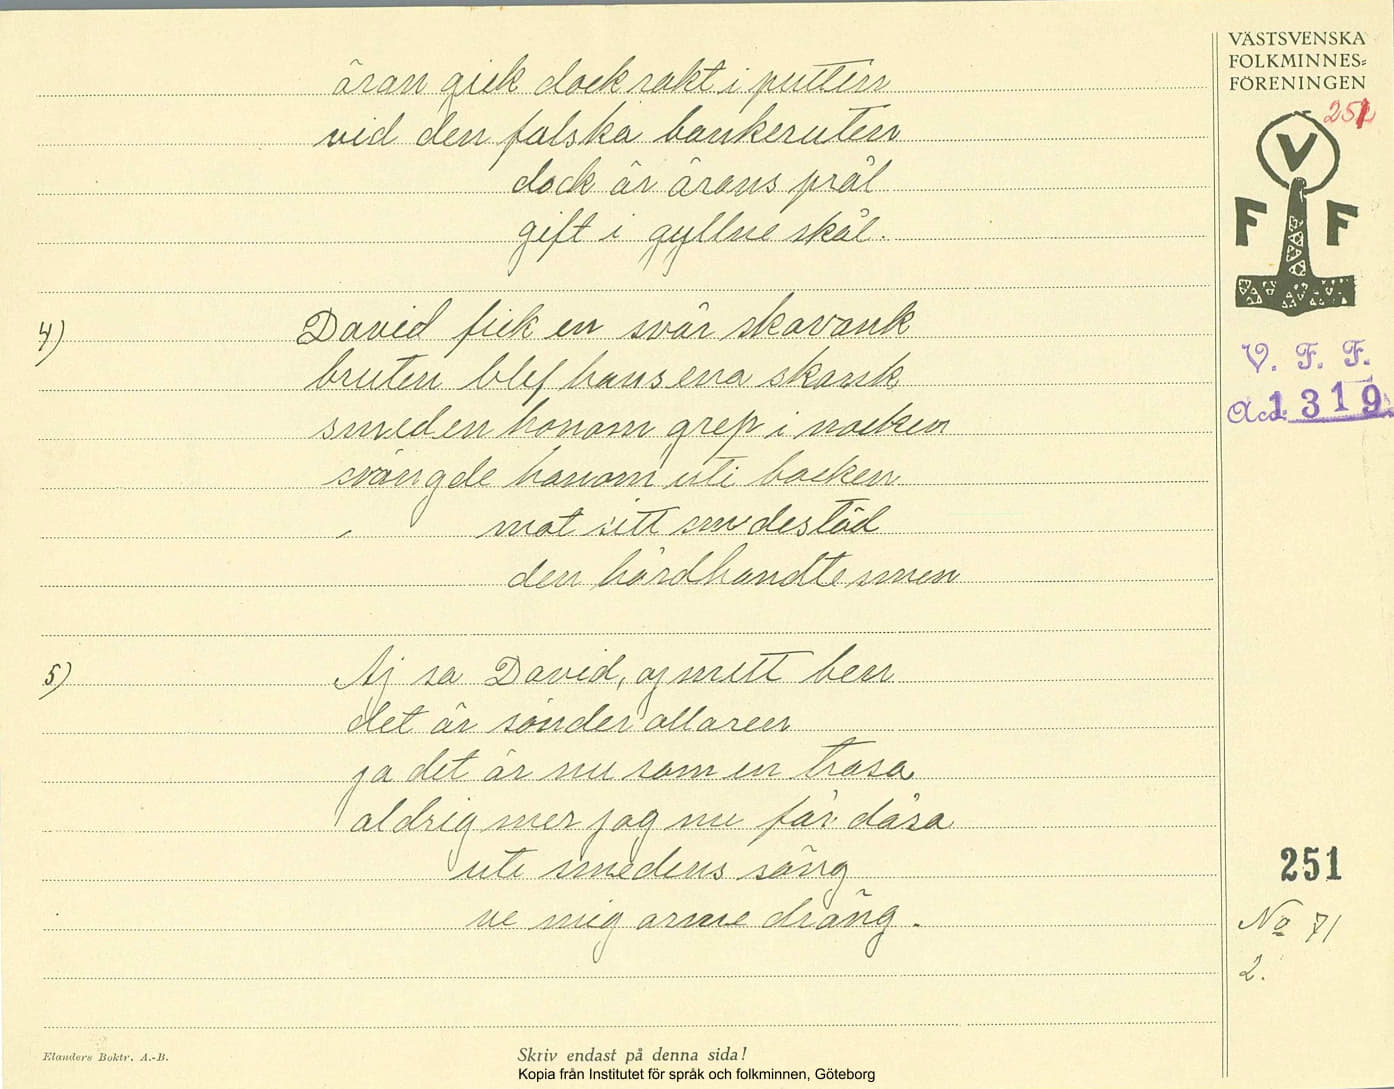 VÄSTSVENSKA
FOLKMINNES=
FÖRENINGEN
251
V
F F
V. F. F.
Acc. 1319
äran gick dock rakt i putten
vid den falska bankeruten
dock är ärans prål
gift i gyllne skål.
4) David fick en svår skavank
bruten blef hans ena skank
smeden honom grep i nacken
svängde honom uti backen
mot sitt smedestäd
den hårdhandte smen
5) Aj sa David, aj mitt ben
det är sönder allaren
ja det är nu som en trasa
aldrig mer jag nu får dåsa
uti smedens säng
ve mig arme dräng.
251
No 71
2.
Elanders Boktr. A.-B.
Skriv endast på denna sida!
Kopia från Institutet för språk och folkminnen, Göteborg